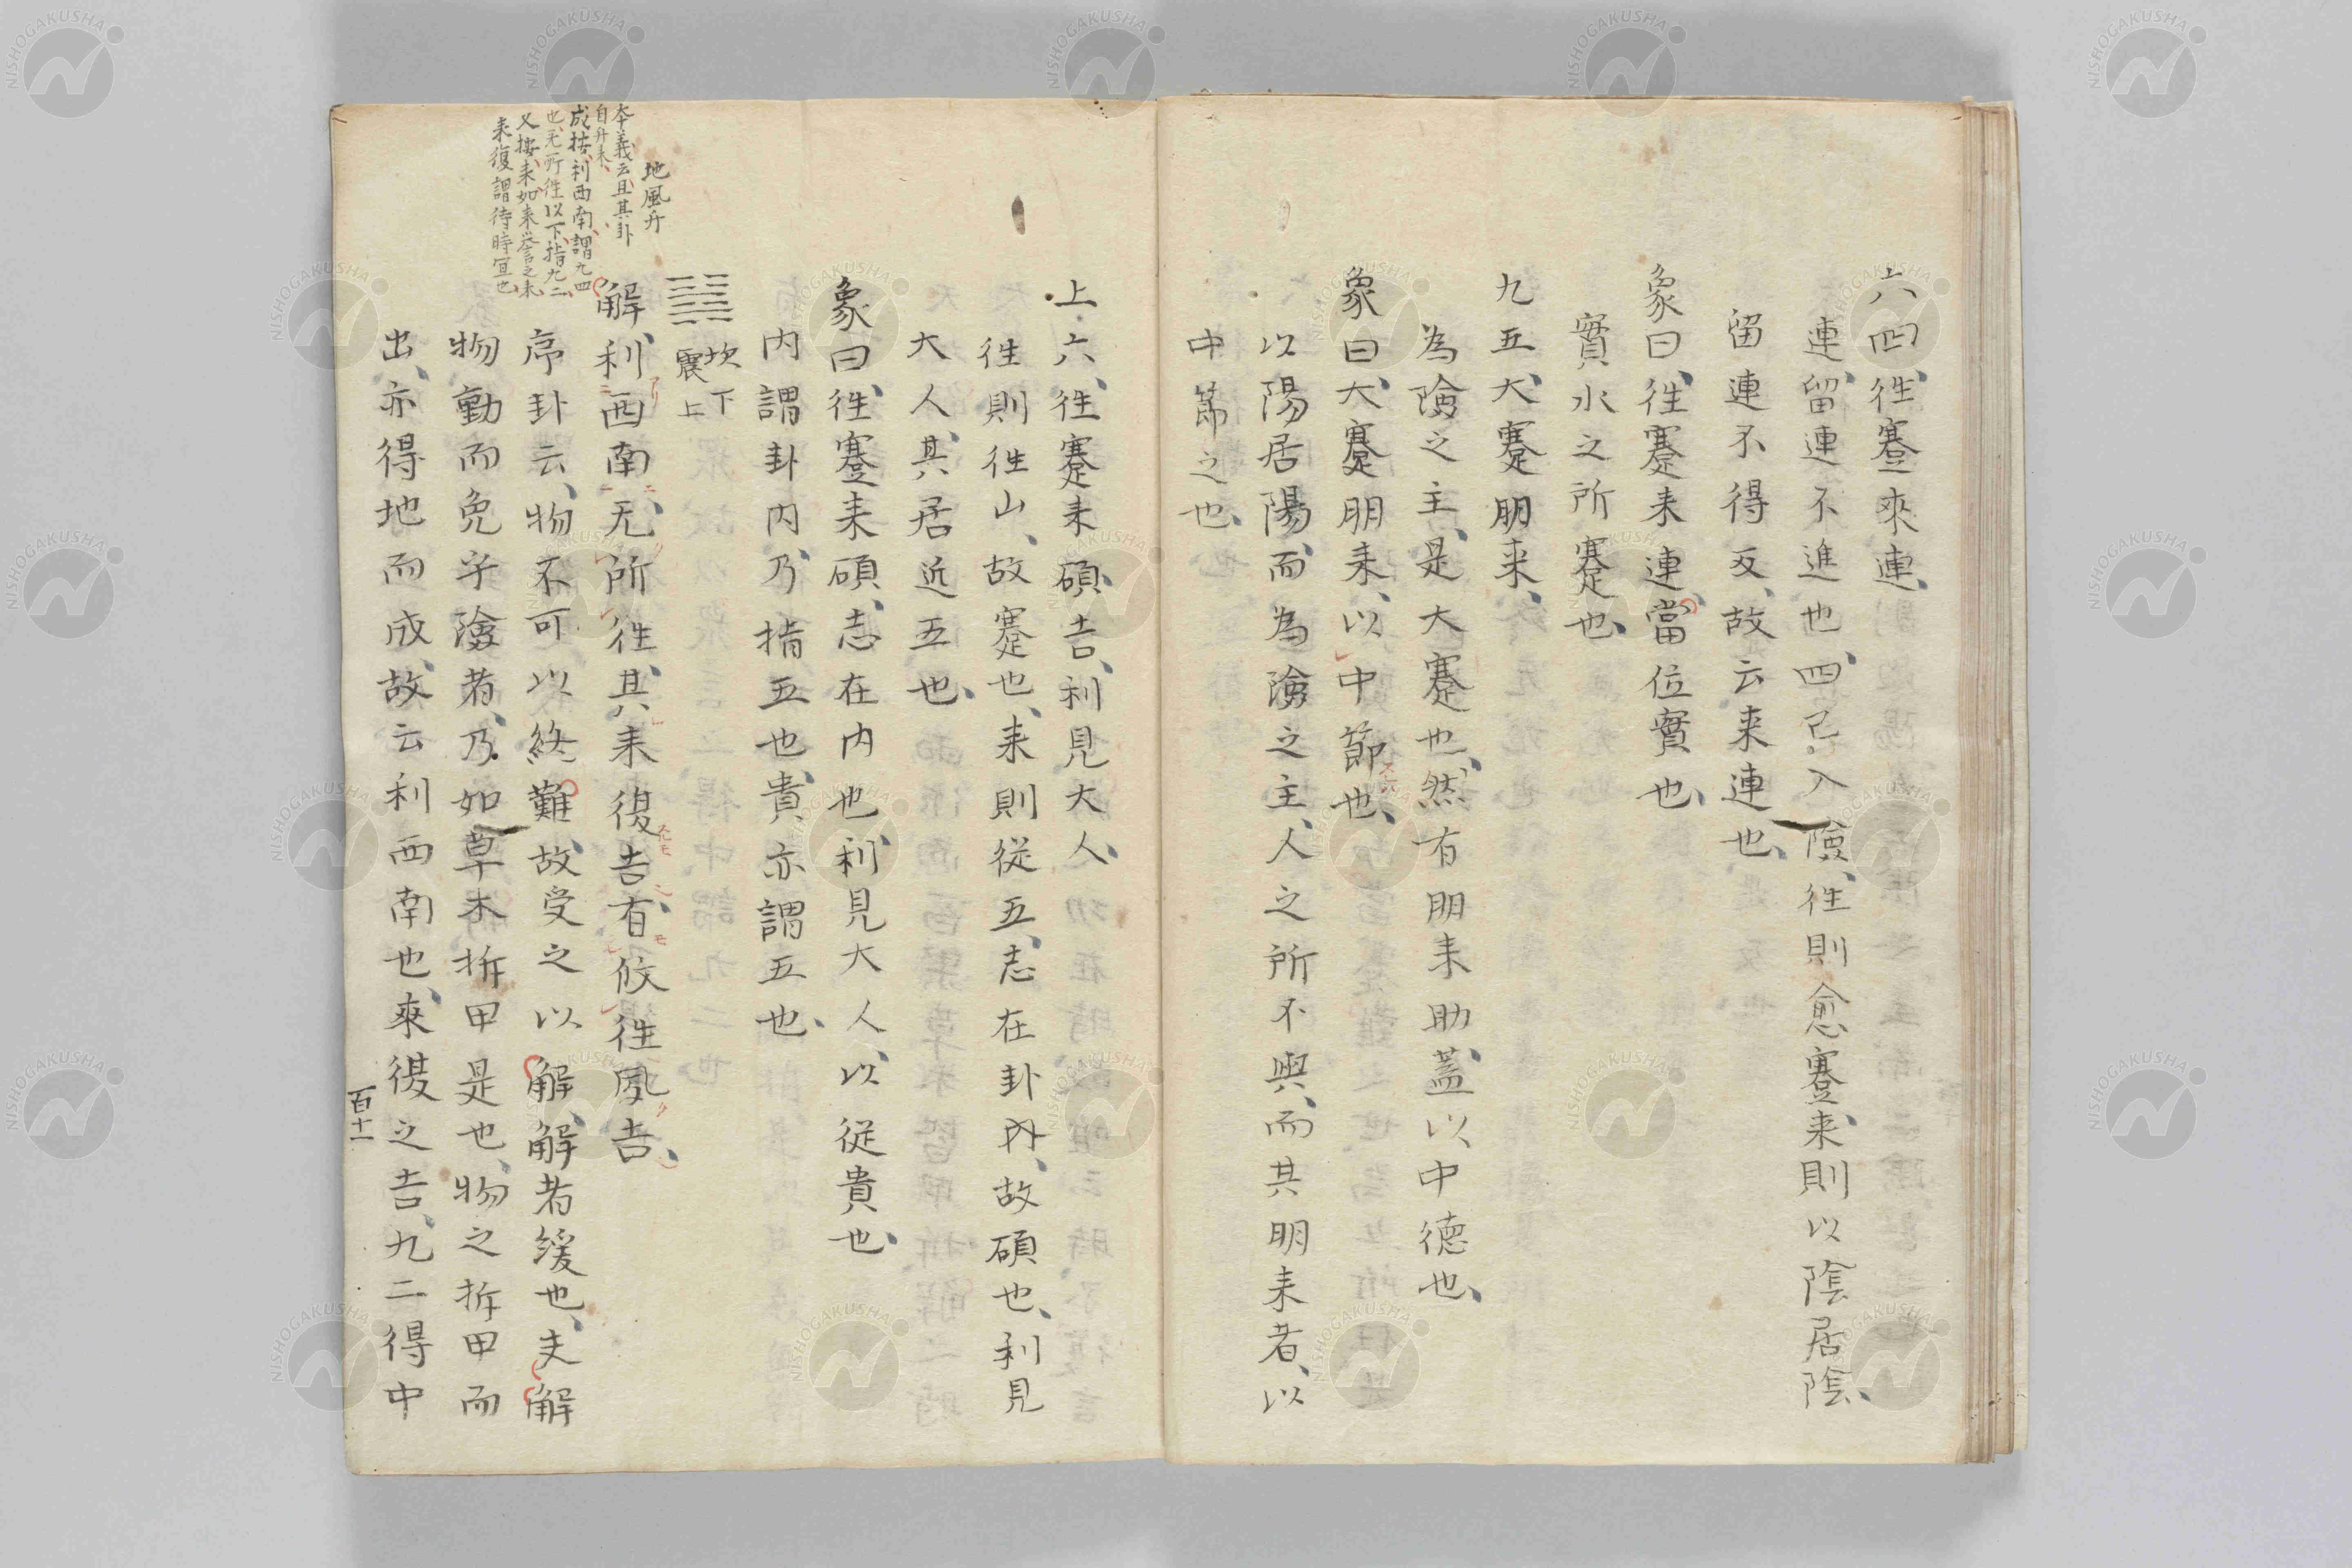 六四、徃蹇來連、
連、留連不進也、四已入險、徃則愈蹇、来則以陰居陰、
留連不得反、故云来連也、
象曰、徃蹇来連、當位實也、
實水之所蹇也、
九五、大蹇朋来、
為險之主、是大蹇也、然有朋来助、蓋以中德也、
象曰、大蹇朋来、以中節也、
以陽居陽、而為險之主、人之所不與、而其朋来者、以
中節之也、
上六、徃蹇来碩、吉、利見大人、
徃則徃山、故蹇也、来則從五、志在卦内、故碩也、利見
大人、其居近五也、
象曰、徃蹇来碩、志在内也、利見大人、以從貴也、
内謂卦内、乃指五也、貴亦謂五也、
坎下
震上
解、利西南、无所徃、其来復吉、有攸徃夙吉、
序卦云、物不可以終難、故受之以解、解者緩也、夫解
物動而免乎險者、乃如草木拆甲是也、物之拆甲而
出、亦得地而成、故云利西南也、來復之吉、九二得中
百十一
地風升
本義云、且其卦
自升来、
成按、利西南、謂九四
也、无所徃以下、指九二、
又按、来如来譽之来、
来復謂待時宜也、
NISHOGAKUSHA